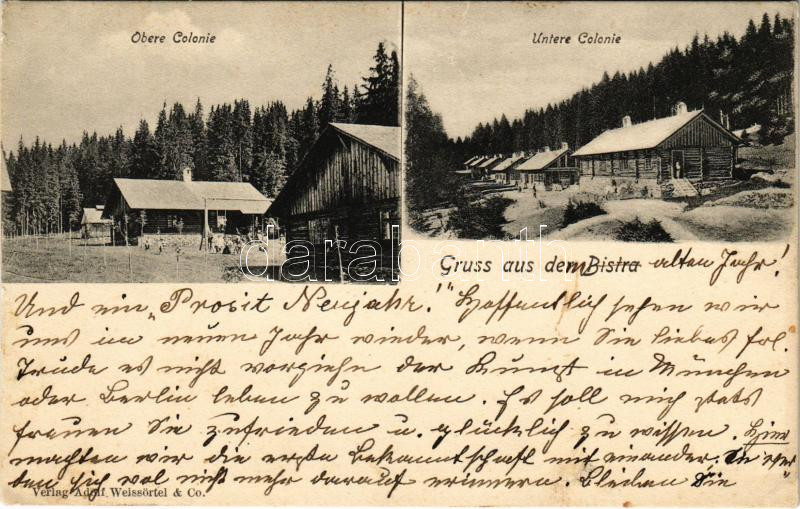 Obere Colonie
Untere Colonie
darabanth
Gruss aus dem Bistra alten Jahr!
Und ein „Prosit Neujahr!“ Hoffentlich sehen wir
uns im neuen Jahr wieder, wenn Sie liebes frl.
Trude es nicht vorziehn der Kunst in München
oder Berlin leben zu wollen. Es soll mich stets
freuen Sie zufrieden u. glücklich zu wissen. Hier
machten wir die erste Bekanntschaft mit einander.
ben sich wol nicht mehr darauf erinnern. Bleiben Sie
Verlag Adolf Weissörtel & Co.